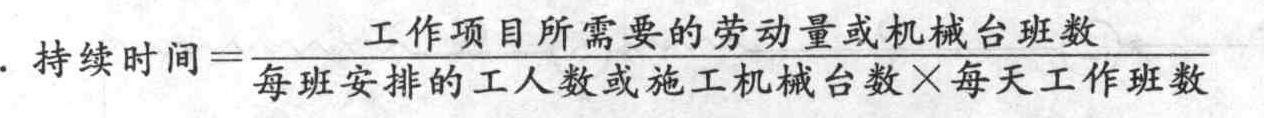 . 持续时间=工作项目所需要的劳动量或机械台班数
每班安排的工人数或施工机械台数×每天工作班数